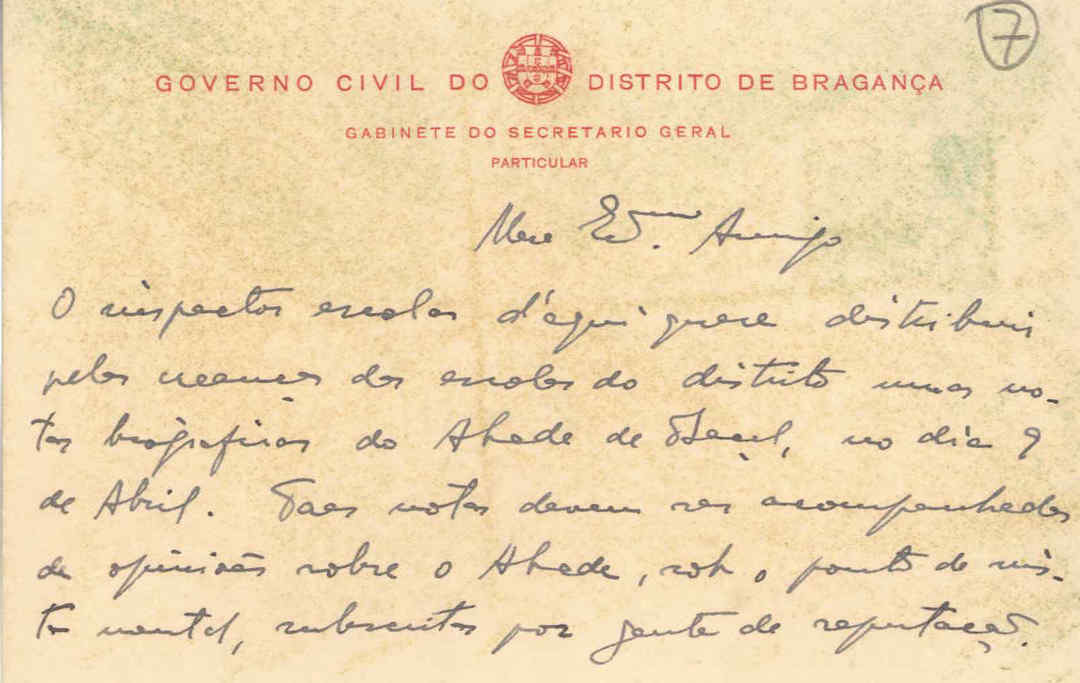 7
GOVERNO CIVIL DO DISTRITO DE BRAGANÇA
GABINETE DO SECRETARIO GERAL
PARTICULAR
Meu Ex.mo Amigo
O inspector escolar d'aqui quere distribuir
pelas creanças das escolas do distrito umas no-
tas biograficas do Abade de Baçal, no dia 9
de Abril. Taes notas devem ser acompanhadas
de opiniões sobre o Abade, sob o ponto de vis-
ta mental, subscritas por gente de reputação.